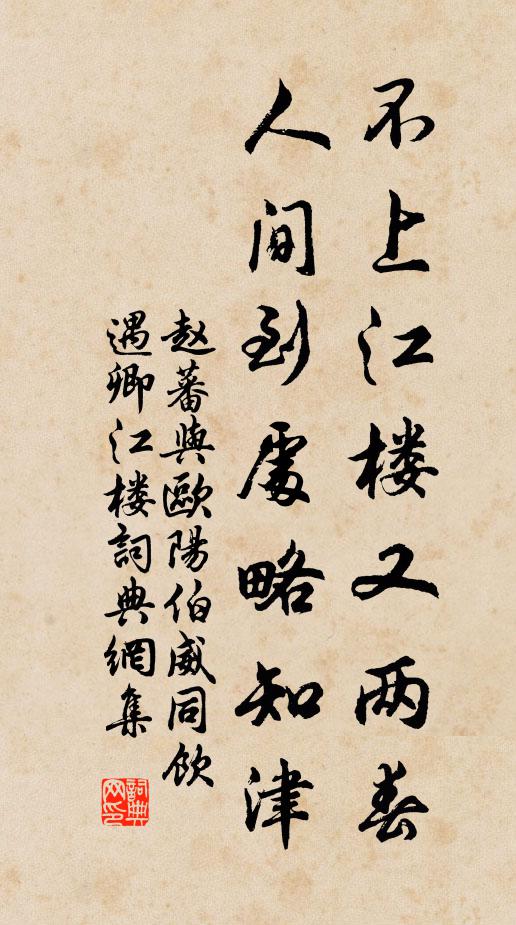 不上江楼又两春
人间到处略知津
赵蕃与欧阳伯威同饮
遇卿江楼词典网集
词典网印